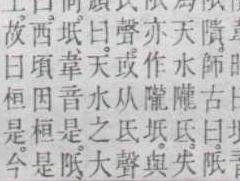 隤師古曰阺
天水隴氏失
亦作隴坻與
聲或从氏聲
曰天水之大
坻韋音是阺
西頃因桓是
故曰桓是今